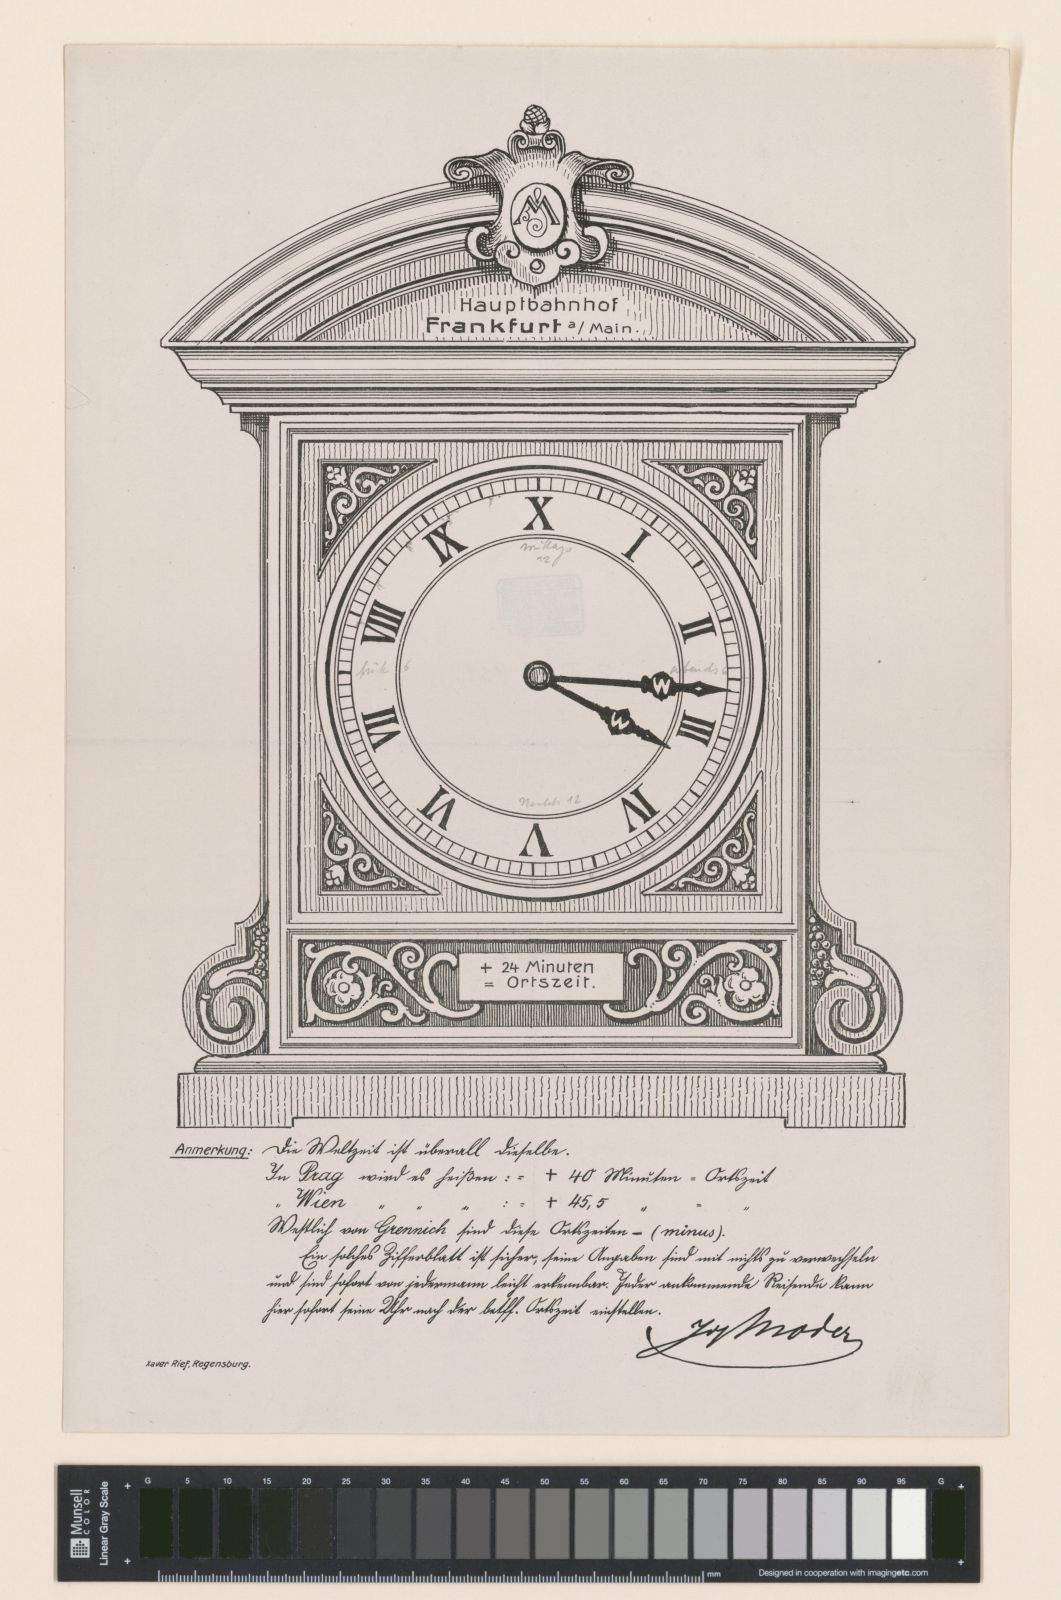 M
Hauptbahnhof
Frankfurt a/Main.
X
I
II
III
IV
V
VI
VII
VIII
IX
mittags
12
abends 6
Nachts 12
früh 6
W
W
+ 24 Minuten
= Ortszeit.
Anmerkung: Die Weltzeit ist überall dieselbe.
In Prag wird es heißen : = + 40 Minuten = Ortszeit
„ Wien „ „ „ : = + 45,5 „ = „
Westlich von Grennich sind diese Ortszeiten – (minus).
Ein solches Zifferblatt ist sicher, seine Angaben sind mit nichts zu verwechseln
und sind sofort von jedermann leicht erkennbar. Jeder ankommende Reisende kann
hier sofort seine Uhr nach der betff. Ortszeit einstellen.
Jos Moder
Xaver Rief, Regensburg.
Munsell
COLOR
Linear Gray Scale
G 5 10 15 20 25 30 35 40 45 50 55 60 65 70 75 80 85 90 95 G
mm
Designed in cooperation with imagingetc.com